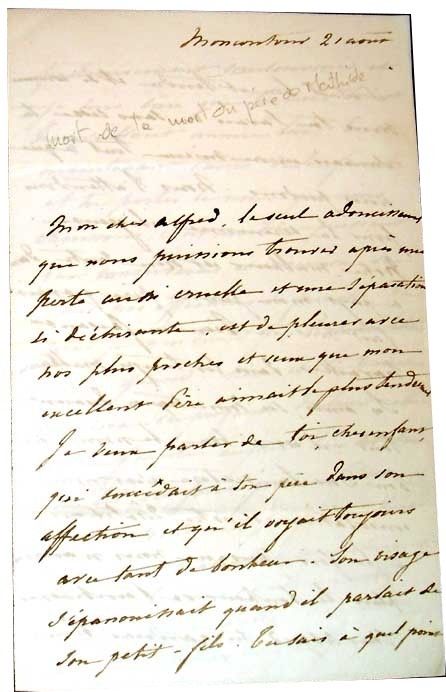 Moncontour 21 août
mort de la mort du père de Mathilde
Mon cher Alfred, le seul adoucissement
que nous puissions trouver après une
perte aussi cruelle et une séparation
si déchirante, est de pleurer avec
nos plus proches et ceux que mon
excellent Père aimait le plus tendrement
Je veux parler de toi, cher enfant,
qui succédait à ton père dans son
affection et qu'il voyait toujours
avec tant de bonheur. Son visage
s'épanouissait quand il parlait de
son petit-fils. Tu sais à quel point